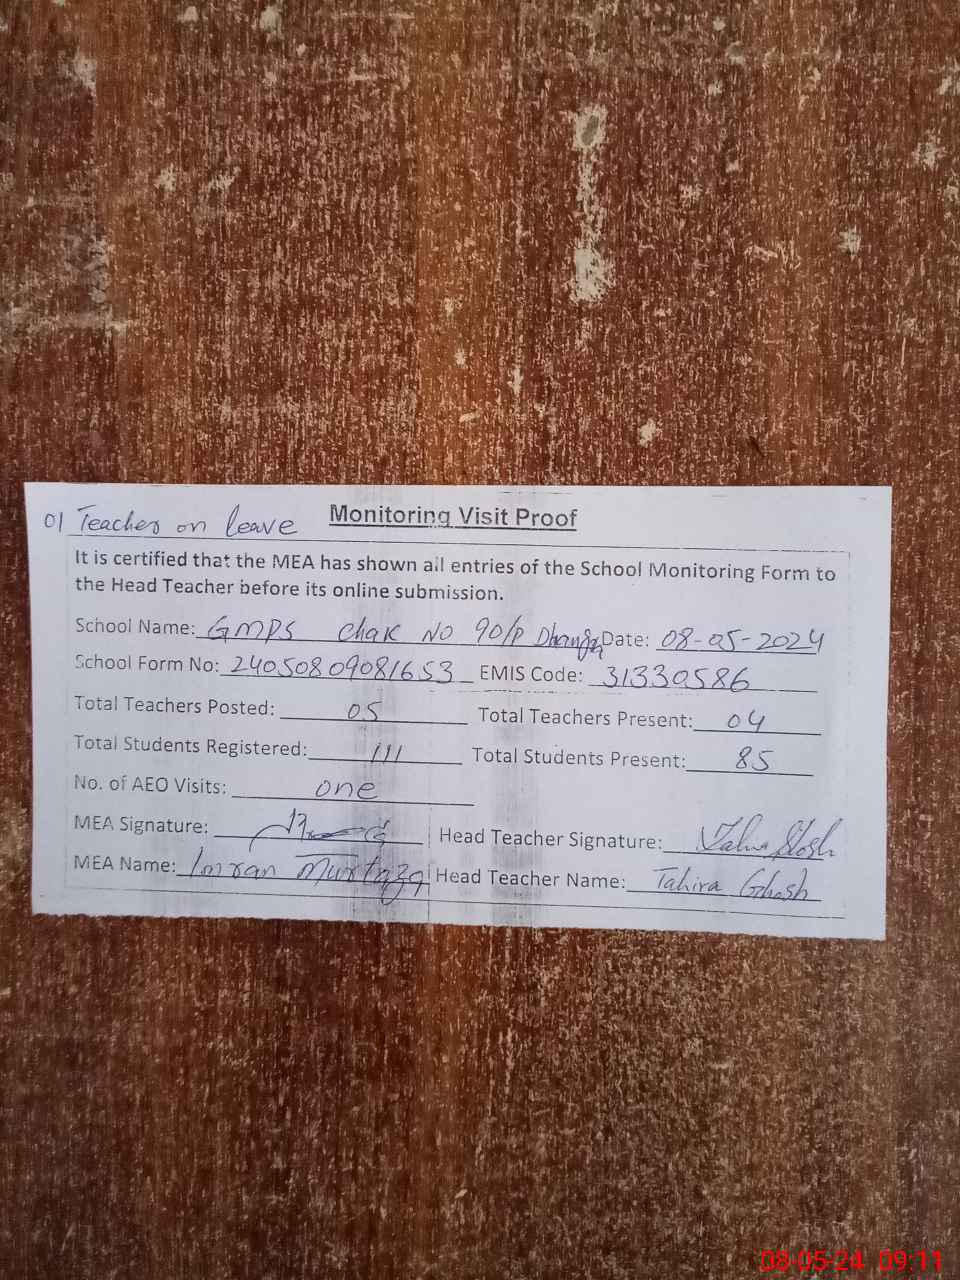 01 Teacher on leave
Monitoring Visit Proof
It is certified that the MEA has shown all entries of the School Monitoring Form to
the Head Teacher before its online submission.
School Name: GMPS Chak No 90/P Date: 08-05-2024
School Form No: 24050809081653 EMIS Code: 31330586
Total Teachers Posted: 05 Total Teachers Present: 04
Total Students Registered: 111 Total Students Present: 85
No. of AEO Visits: one
MEA Signature: Head Teacher Signature:
MEA Name: Imran Murtaza Head Teacher Name: Tahira
08-05-24 09:11